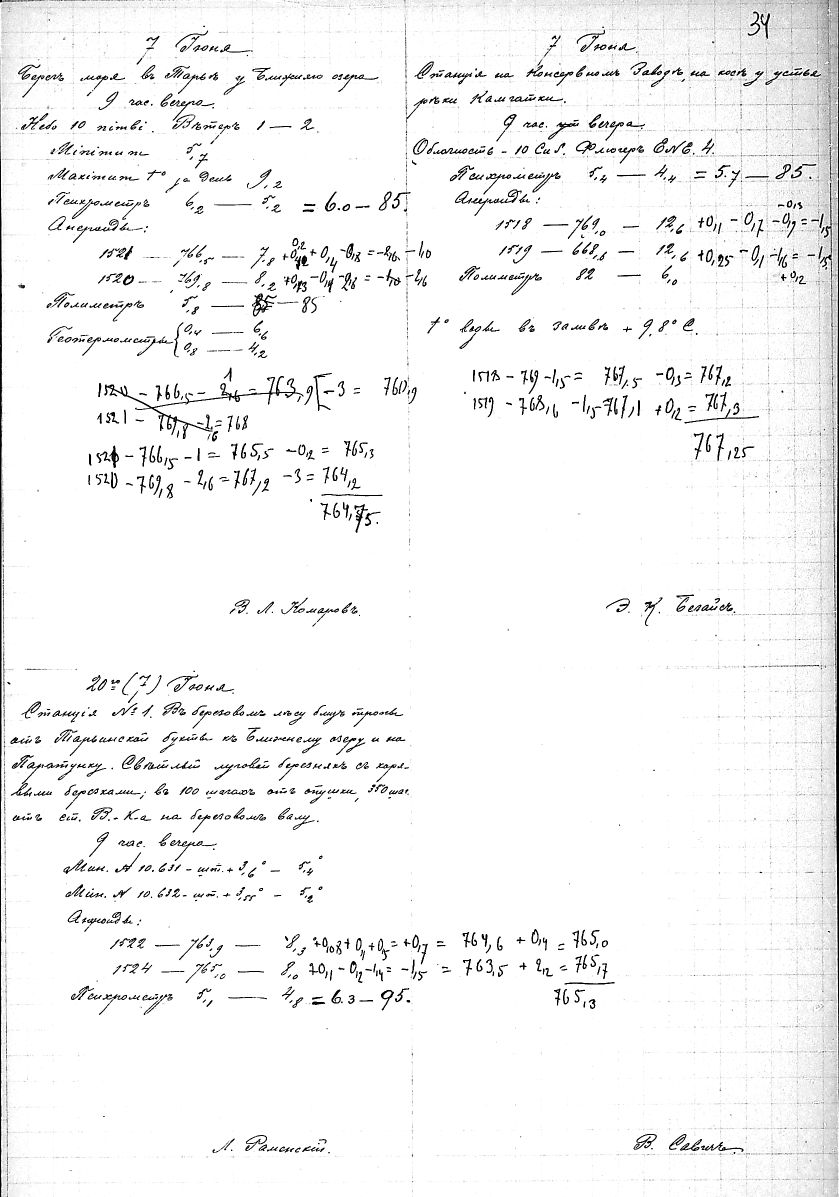 34
7 Іюня.
Берегъ моря въ Тарьѣ у Ближняго озера
9 час. вечера.
Небо 10 nimbi. Вѣтеръ 1 — 2.
Minimum 5,7
Maximum t° за день 9,2
Психрометръ 6,2 — 5,2 = 6.0 — 85.
Анероиды:
1521 — 766,5 — 7,8
1520 — 769,8 — 8,2
Полиметръ 5,8 — 85
Геотермометры { 0,4 — 6,6
0,8 — 4,2
1520 — 766,5 — 2,6 = 763,9 [ — 3 = 760,9
1521 — 769,8 = 768
1521 — 766,5 — 1 = 765,5 — 0,2 = 765,3
1520 — 769,8 — 2,6 = 767,2 — 3 = 764,2
764,75.
В. Л. Комаровъ.
7 Іюня.
Станція на Консервномъ Заводѣ, на косѣ у устья
рѣки Камчатки.
9 час. вечера.
Облачность — 10 Cu S. Флюгеръ ENE. 4.
Психрометръ 5,4 — 4,4 = 5.7 — 85.
Анероиды:
-0,3
1518 — 769,0 — 12,6 +0,11 — 0,7 — 0,9 = -1,5
1519 — 668,6 — 12,6 +0,25 — 0,1 — 1,6 = -1,5
+0,2
Полиметръ 82 — 6,0
t° воды въ заливѣ + 9,8° C.
1518 — 769 — 1,5 = 767,5 — 0,3 = 767,2
1519 — 768,6 — 1,5 — 767,1 + 0,2 = 767,3
767,25
Э. К. Безайсъ.
20го (7) Іюня.
Станція № 1. Въ березовомъ лѣсу близъ тропы
отъ Тарьинской бухты къ Ближнему озеру и на
Паратунку. Свѣтлый луговой березнякъ съ коря-
выми березками; въ 100 шагахъ отъ опушки, 350 шаг.
отъ ст. В.-К-а на березовомъ валу.
9 час. вечера.
Мин. N 10.631 — шт. + 3,6° — 5,4°
Мин. N 10.632 — шт. + 3,55° — 5,2°
Анероиды:
1522 — 763,9 — 8,3 +0,08 + 0,1 + 0,5 = +0,7 = 764,6 + 0,4 = 765,0
1524 — 765,0 — 8,0 +0,11 — 0,2 — 1,4 = -1,5 = 763,5 + 2,2 = 765,7
765,3
Психрометръ 5,1 — 4,8 = 6.3 — 95.
Л. Раменскій.
В. Савичъ